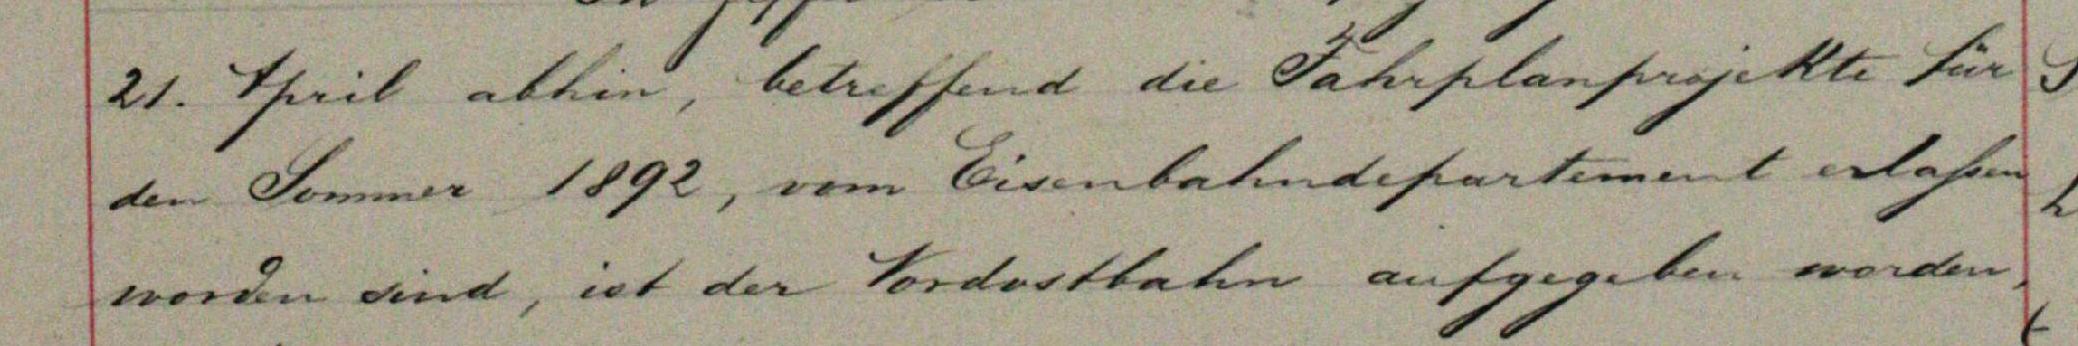 21. April abhin, betreffend die Fahrplanprojekte für
den Sommer 1892, vom Eisenbahndepartement erlaßen
worden sind, ist der Nordostbahn aufgegeben worden,